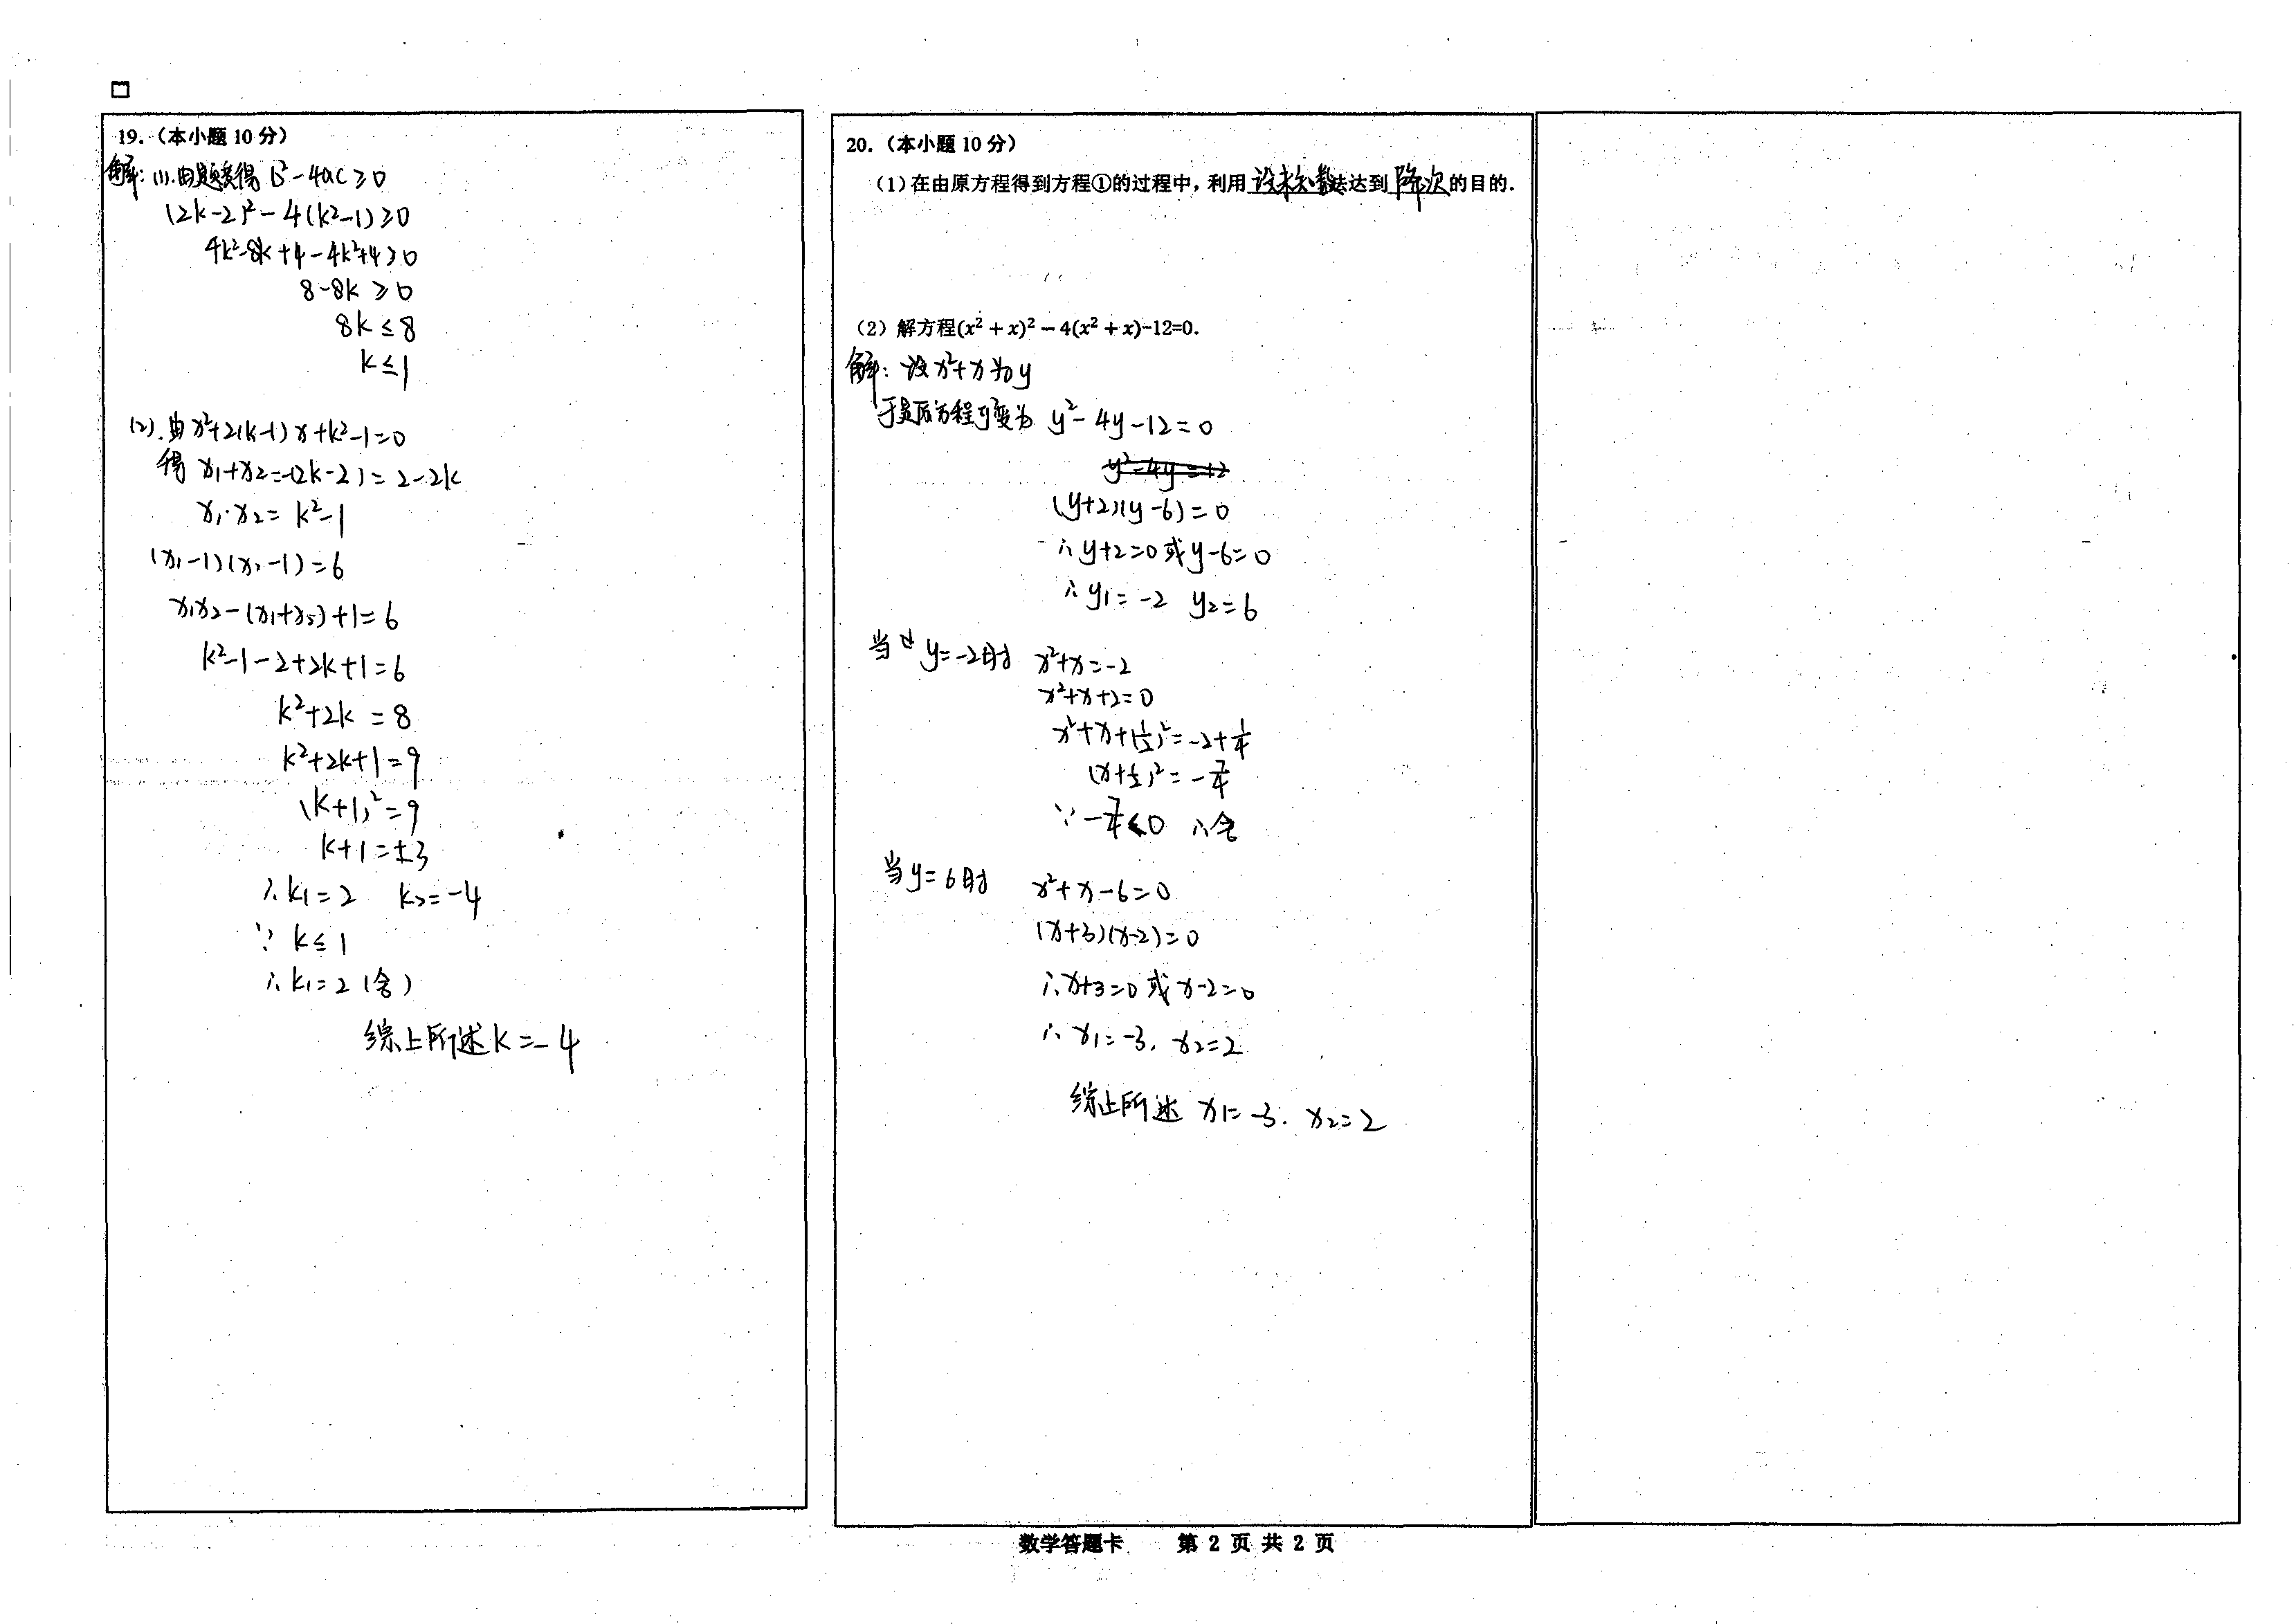 19.（本小题 10 分）
解: (1).由题意得 b²-4ac≥0
(2k-2)²-4(k²-1)≥0
4k²-8k+4-4k²+4≥0
8-8k≥0
8k≤8
k≤1
(2).由x²+2(k-1)x+k²-1=0
得 x₁+x₂=-(2k-2)=2-2k
x₁·x₂=k²-1
(x₁-1)(x₂-1)=6
x₁x₂-(x₁+x₂)+1=6
k²-1-2+2k+1=6
k²+2k=8
k²+2k+1=9
(k+1)²=9
k+1=±3
∴k₁=2 k₂=-4
∵k≤1
∴k₁=2(舍)
综上所述k=-4
20.（本小题 10 分）
（1）在由原方程得到方程①的过程中，利用设未知数法达到降次的目的.
（2）解方程(x² + x)² − 4(x² + x)-12=0.
解: 设x²+x为y
于是原方程可变为 y²-4y-12=0
y²-4y=12
(y+2)(y-6)=0
∴y+2=0或y-6=0
∴y₁=-2 y₂=6
当y=-2时 x²+x=-2
x²+x+2=0
x²+x+(1/2)²=-2+1/4
(x+1/2)²=-7/4
∵-7/4<0 ∴舍
当y=6时 x²+x-6=0
(x+3)(x-2)=0
∴x+3=0或x-2=0
∴x₁=-3, x₂=2
综上所述 x₁=-3. x₂=2
数学答题卡 第 2 页 共 2 页